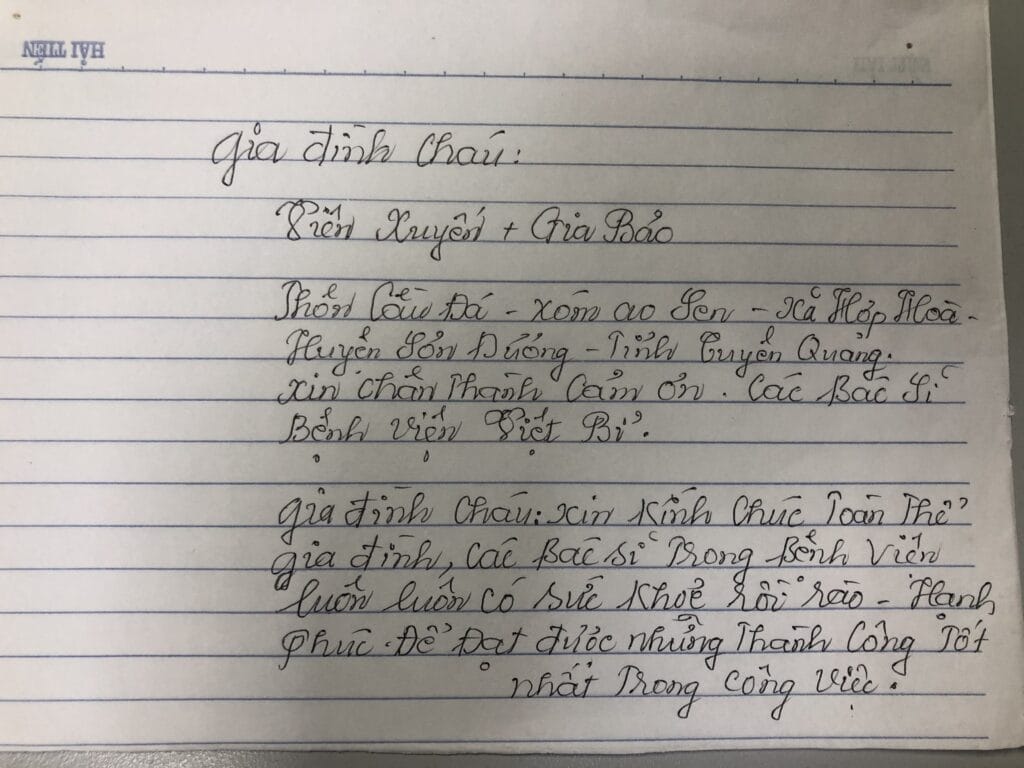 HẢI TIẾN
Gia đình cháu:
Tiến Xuyến + Gia Bảo
Thôn Cầu Đá - xóm ao sen - xã Hợp Hoà -
Huyện Sơn Dương - Tỉnh Tuyên Quang.
xin chân thành cảm ơn. các Bác sĩ
Bệnh viện Việt Bỉ.
Gia đình cháu: xin kính chúc toàn thể
gia đình, các Bác sĩ trong Bệnh viện
luôn luôn có sức khoẻ rồi rào - Hạnh
phúc. Để Đạt được những Thành Công Tốt
nhất trong công việc.